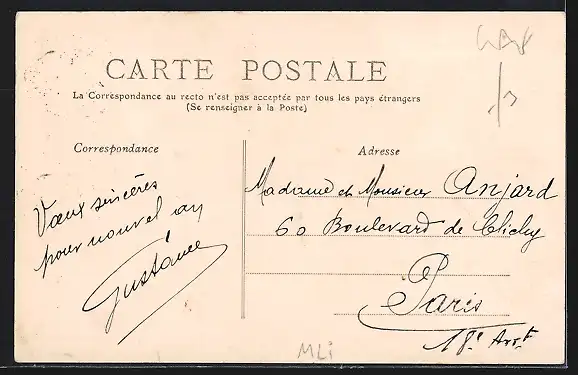 CARTE POSTALE
La Correspondance au recto n'est pas acceptée par tous les pays étrangers
(Se renseigner à la Poste)
Correspondance
Vœux sincères
pour nouvel an
Gustave
Adresse
Madame et Monsieur Anjard
60 Boulevard de Clichy
Paris
18e Arrt
MLi